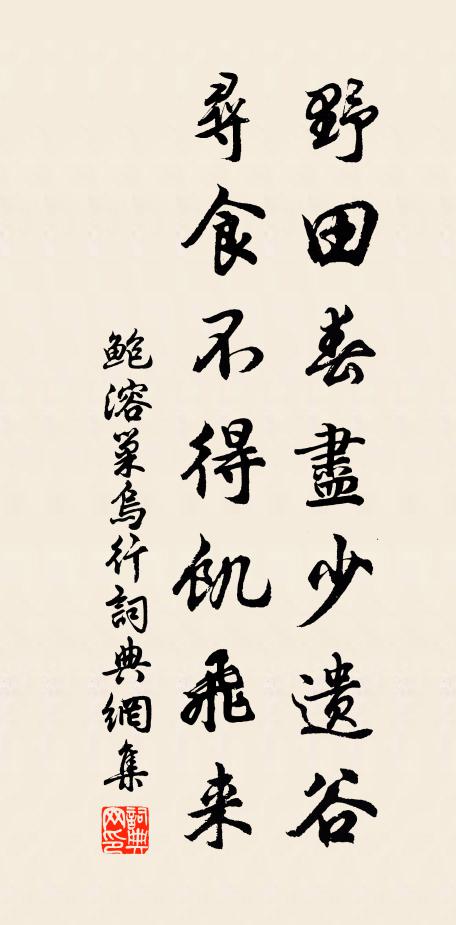 野田春盡少遺谷
尋食不得飢飛来
鲍溶巢烏行詞典網集
詞典网印